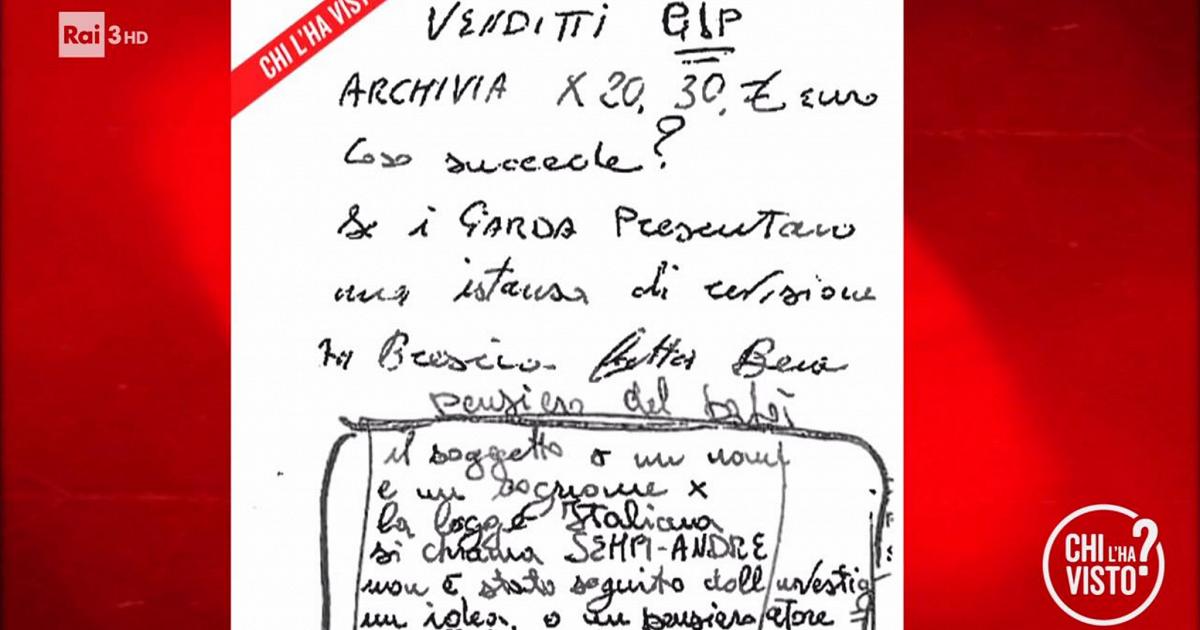 Rai 3HD
CHI L'HA VIS
VENDITTI GIP
ARCHIVIA X 20, 30, € euro
Cosa succede?
Se i GARDA Presentano
una istansa di revisione
In Brescia fatta Bene
pensiero del
il soggetto a un nome
e un cognome x
la logge Italiana
si chiama SEMPI-ANDRE
non è stato seguito dall investig
un idea, o un pensiero atore
CHI L'HA
VISTO?